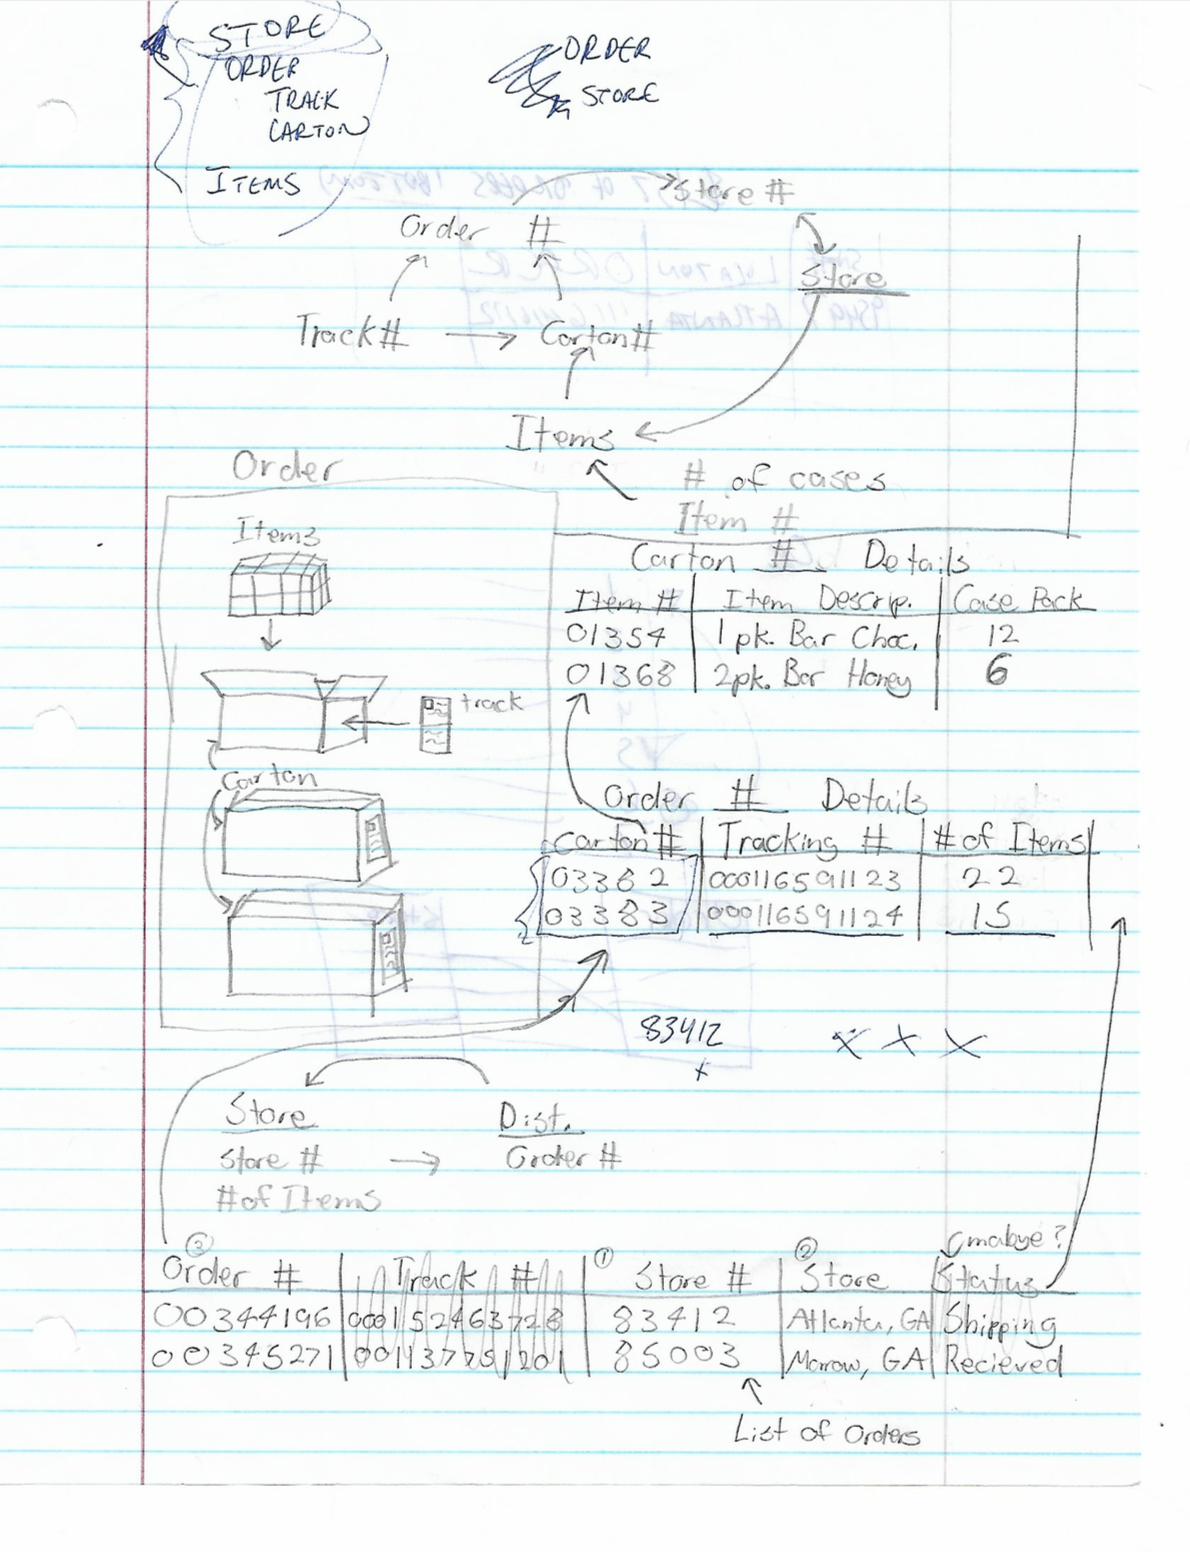 STORE
ORDER
TRACK
CARTON
ITEMS
ORDER
STORE
Store #
Order #
Store
Track# Carton#
Items
# of cases
Item #
Order
Items
track
Carton
Carton # Details
Item # Item Descrip. Case Pack
01354 1 pk. Bar Choc. 12
01368 2pk. Bar Honey 6
Order # Details
Carton # Tracking # # of Items
03382 000116591123 22
03383 000116591124 15
83412
x
x x x
Store Dist.
Store # Order #
# of Items
mabye?
③ ① ②
Order # Track # Store # Store Status
00344196 000152463728 83412 Atlanta, GA Shipping
00345271 85003 Morrow, GA Recieved
List of Orders